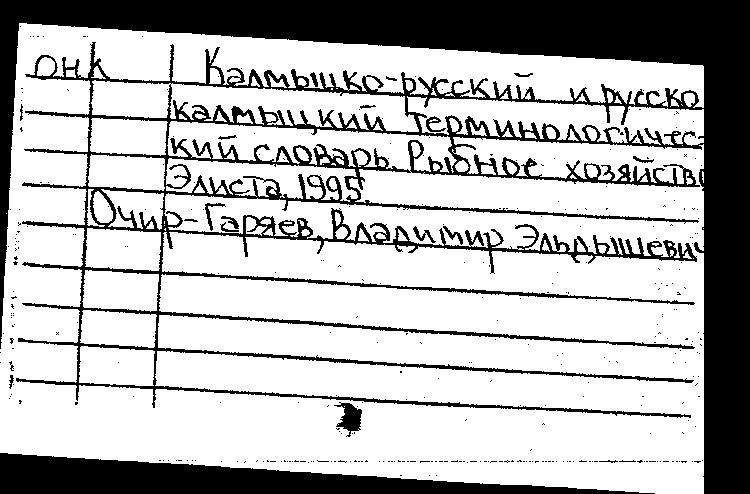 ОНК Калмыцко-русский и русско
калмыцкий терминологичес-
кий словарь. Рыбное хозяйство
Элиста, 1995.
Очир-Гаряев, Владимир Эльдышевич